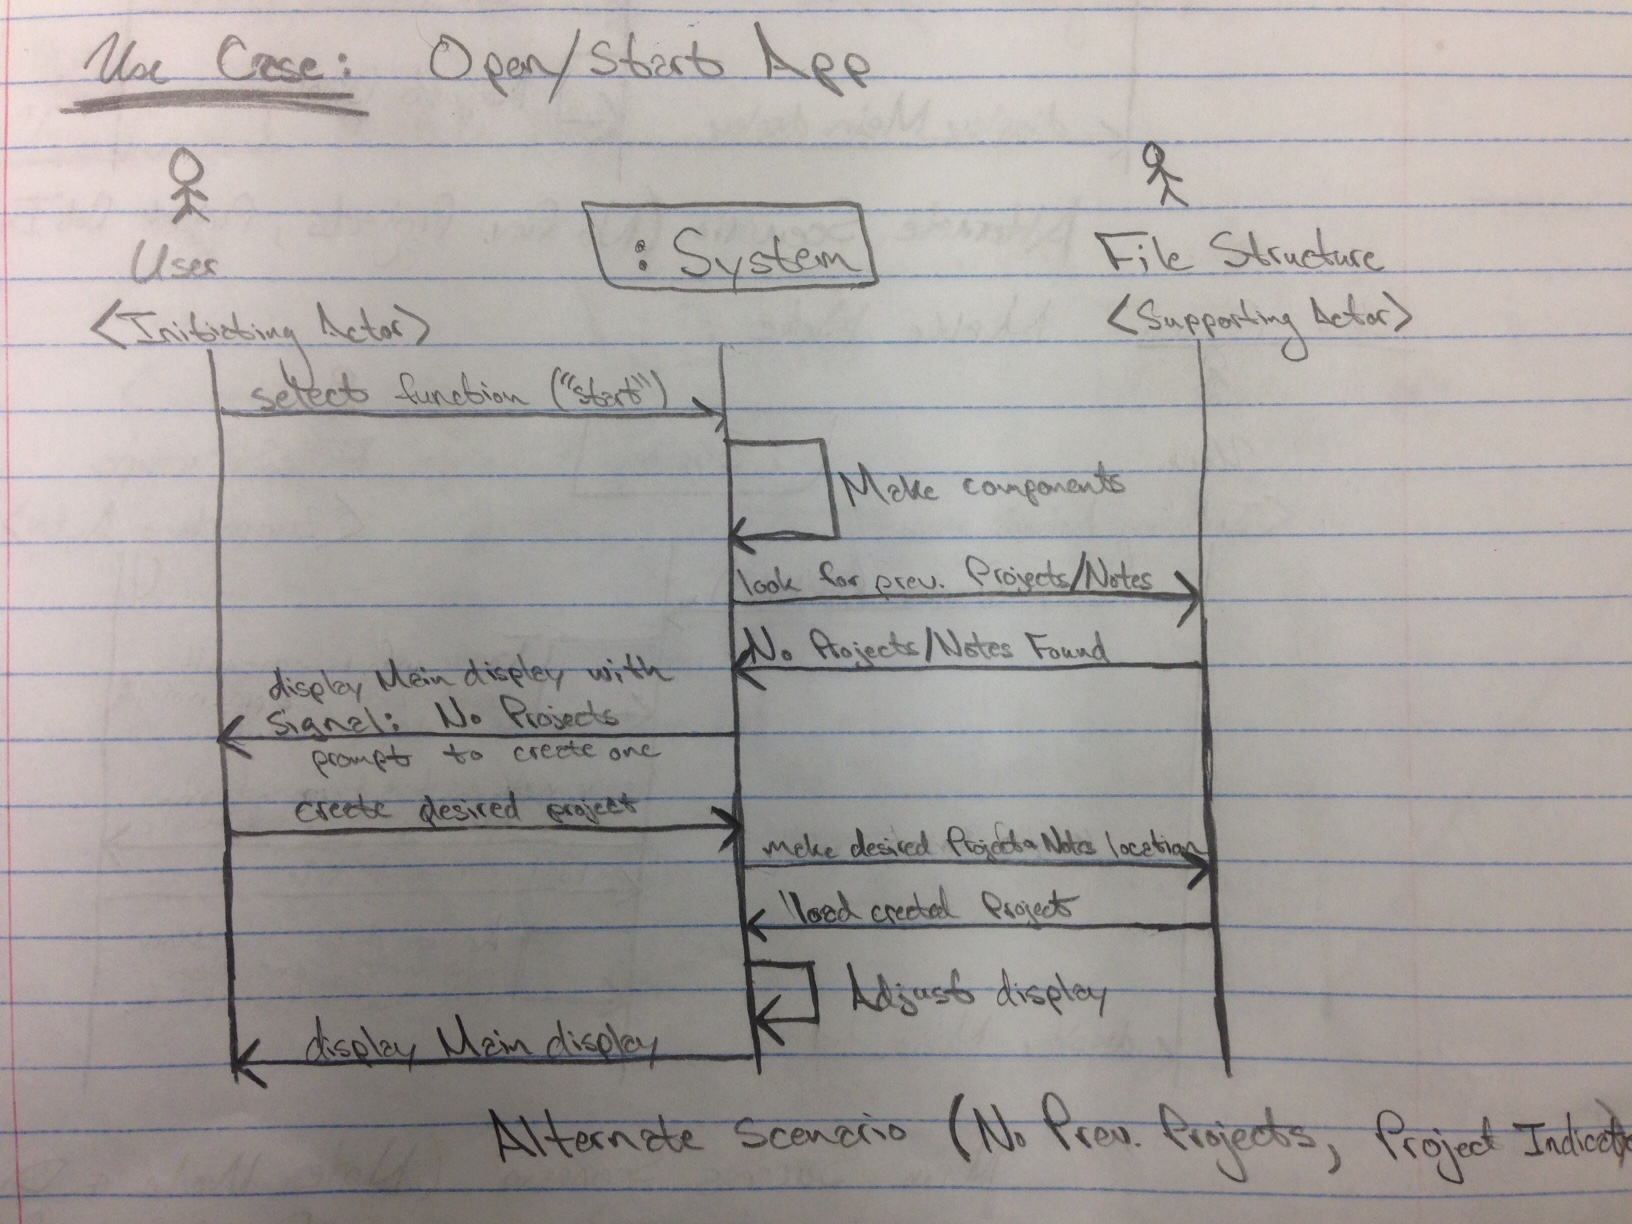 Use Case: Open/Start App
User
: System
File Structure
<Initiating Actor>
<Supporting Actor>
select function ("start")
Make components
look for prev. Projects/Notes
No Projects/Notes Found
display Main display with
signal: No Projects
prompt to create one
create desired project
make desired Project Notes location
load created Project
Adjust display
display Main display
Alternate Scenario (No Prev. Projects, Project